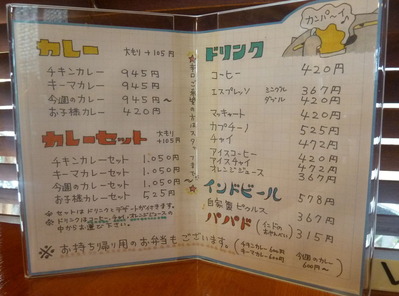 カレー 大モリ +105円
チキンカレー 945円
キーマカレー 945円
今週のカレー 945円～
お子様カレー 420円
カレーセット 大モリ +105円
チキンカレーセット 1,050円
キーマカレーセット 1,050円
今週のカレーセット 1,050円～
お子様カレーセット 525円
※セットはドリンクとデザートがつきます。
※ドリンクはコーヒー、チャイ、オレンジジュースの
中からお選び下さい。
※お持ち帰り用のお弁当もございます。
(チキンカレー 600円
キーマカレー 600円
今週のカレー
600円～)
★辛口ご希望の方はスタッフまで★
カンパ～イ♪
ドリンク
コーヒー 420円
エスプレッソ シングル 367円
ダブル 420円
マッキャート 420円
カプチーノ 525円
チャイ 472円
アイスコーヒー 420円
アイスチャイ 472円
オレンジジュース 367円
インドビール 578円
自家製ピクルス 367円
パパド (インドのおせんべい) 315円